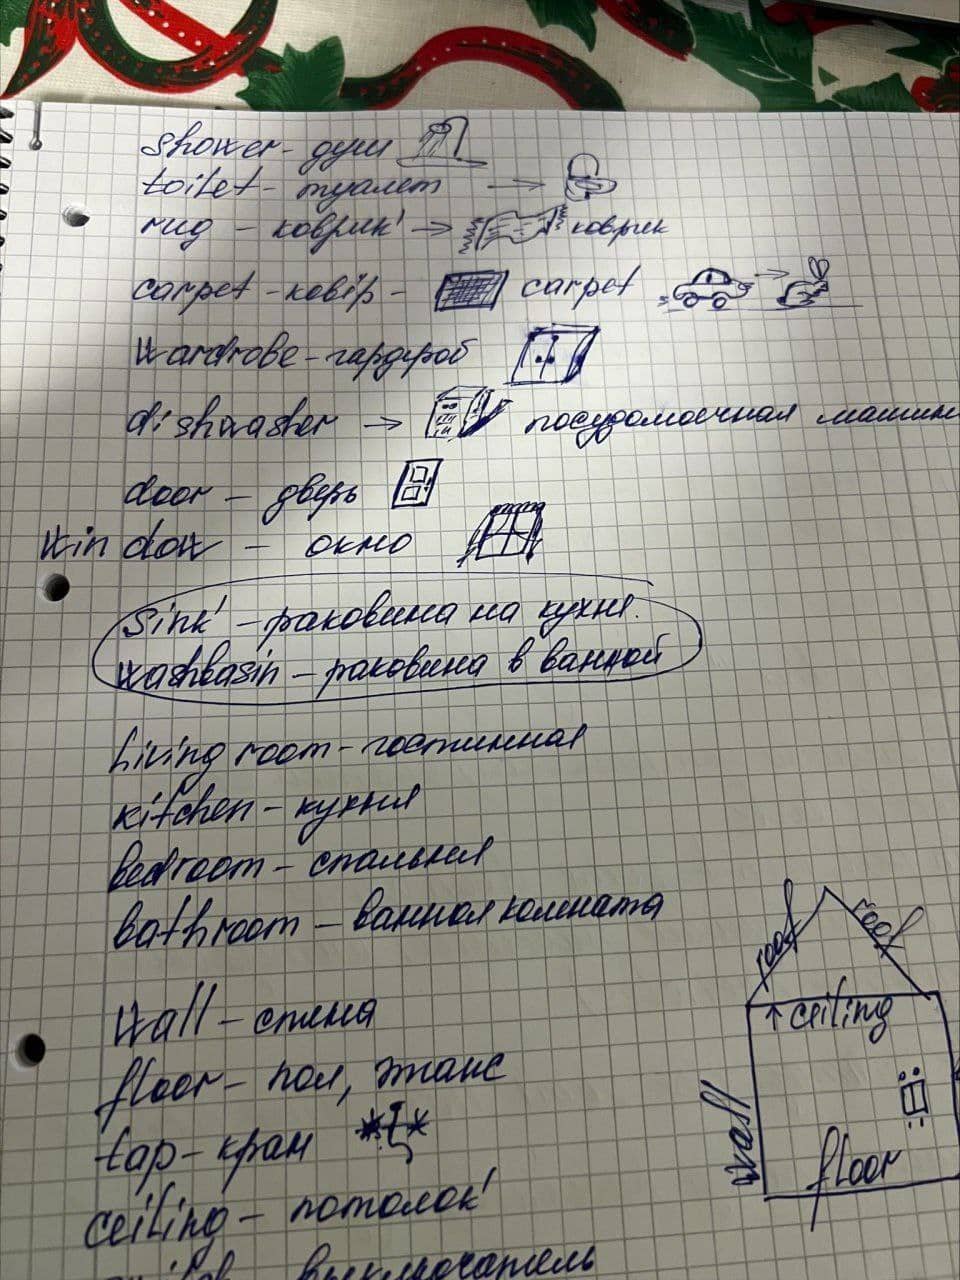 shower - душ
toilet - туалет →
rug - коврик → коврик
carpet - ковір - carpet →
wardrobe - гардероб
dishwasher → посудомоечная машин
door - дверь
window - окно
Sink - раковина на кухня.
washbasin - раковина в ванной
Living room - гостинная
kitchen - кухня
bedroom - спальня
bathroom - ванная комната
roof roof
wall - стена
↑ ceiling
floor - пол, этаж
wall
tap - кран
floor
ceiling - потолок
выключатель